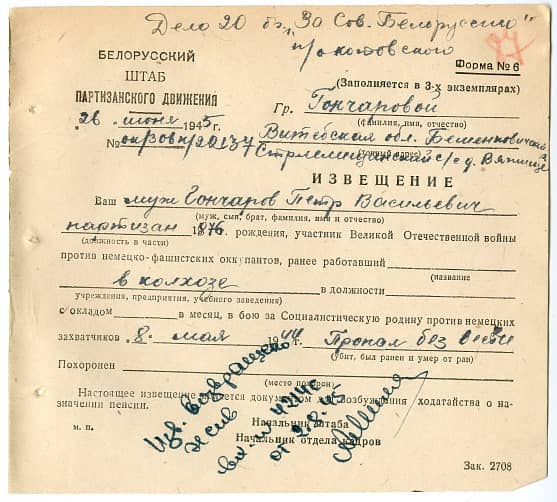 Дело 20 бр. "За Сов. Белоруссию"
Прокоповского
БЕЛОРУССКИЙ
ШТАБ
ПАРТИЗАНСКОГО ДВИЖЕНИЯ
Форма № 6
(Заполняется в 3-х экземплярах)
Гр. Гончаровой
(фамилия, имя, отчество)
26 июня 1945 г.
Витебская обл.
№
(точный адрес)
с/с д.
ИЗВЕЩЕНИЕ
Ваш муж Гончаров Петр Васильевич
(муж, сын, брат, фамилия, имя и отчество)
партизан рождения, участник Великой Отечественной войны
(должность в части)
против немецко-фашистских оккупантов, ранее работавший
(название
в колхозе в должности
учреждения, предприятия, учебного заведения)
с окладом в месяц, в бою за Социалистическую родину против немецких
захватчиков 8 мая 1944 г. Пропал без вести
(убит, был ранен и умер от ран)
Похоронен
(место похорон)
Настоящее извещение является документом для возбуждения ходатайства о на-
значении пенсии.
Изв. возвращено
жив
вх. № 4246
от 2.8.45
м. п.
Начальник штаба
Начальник отдела кадров
Зак. 2708